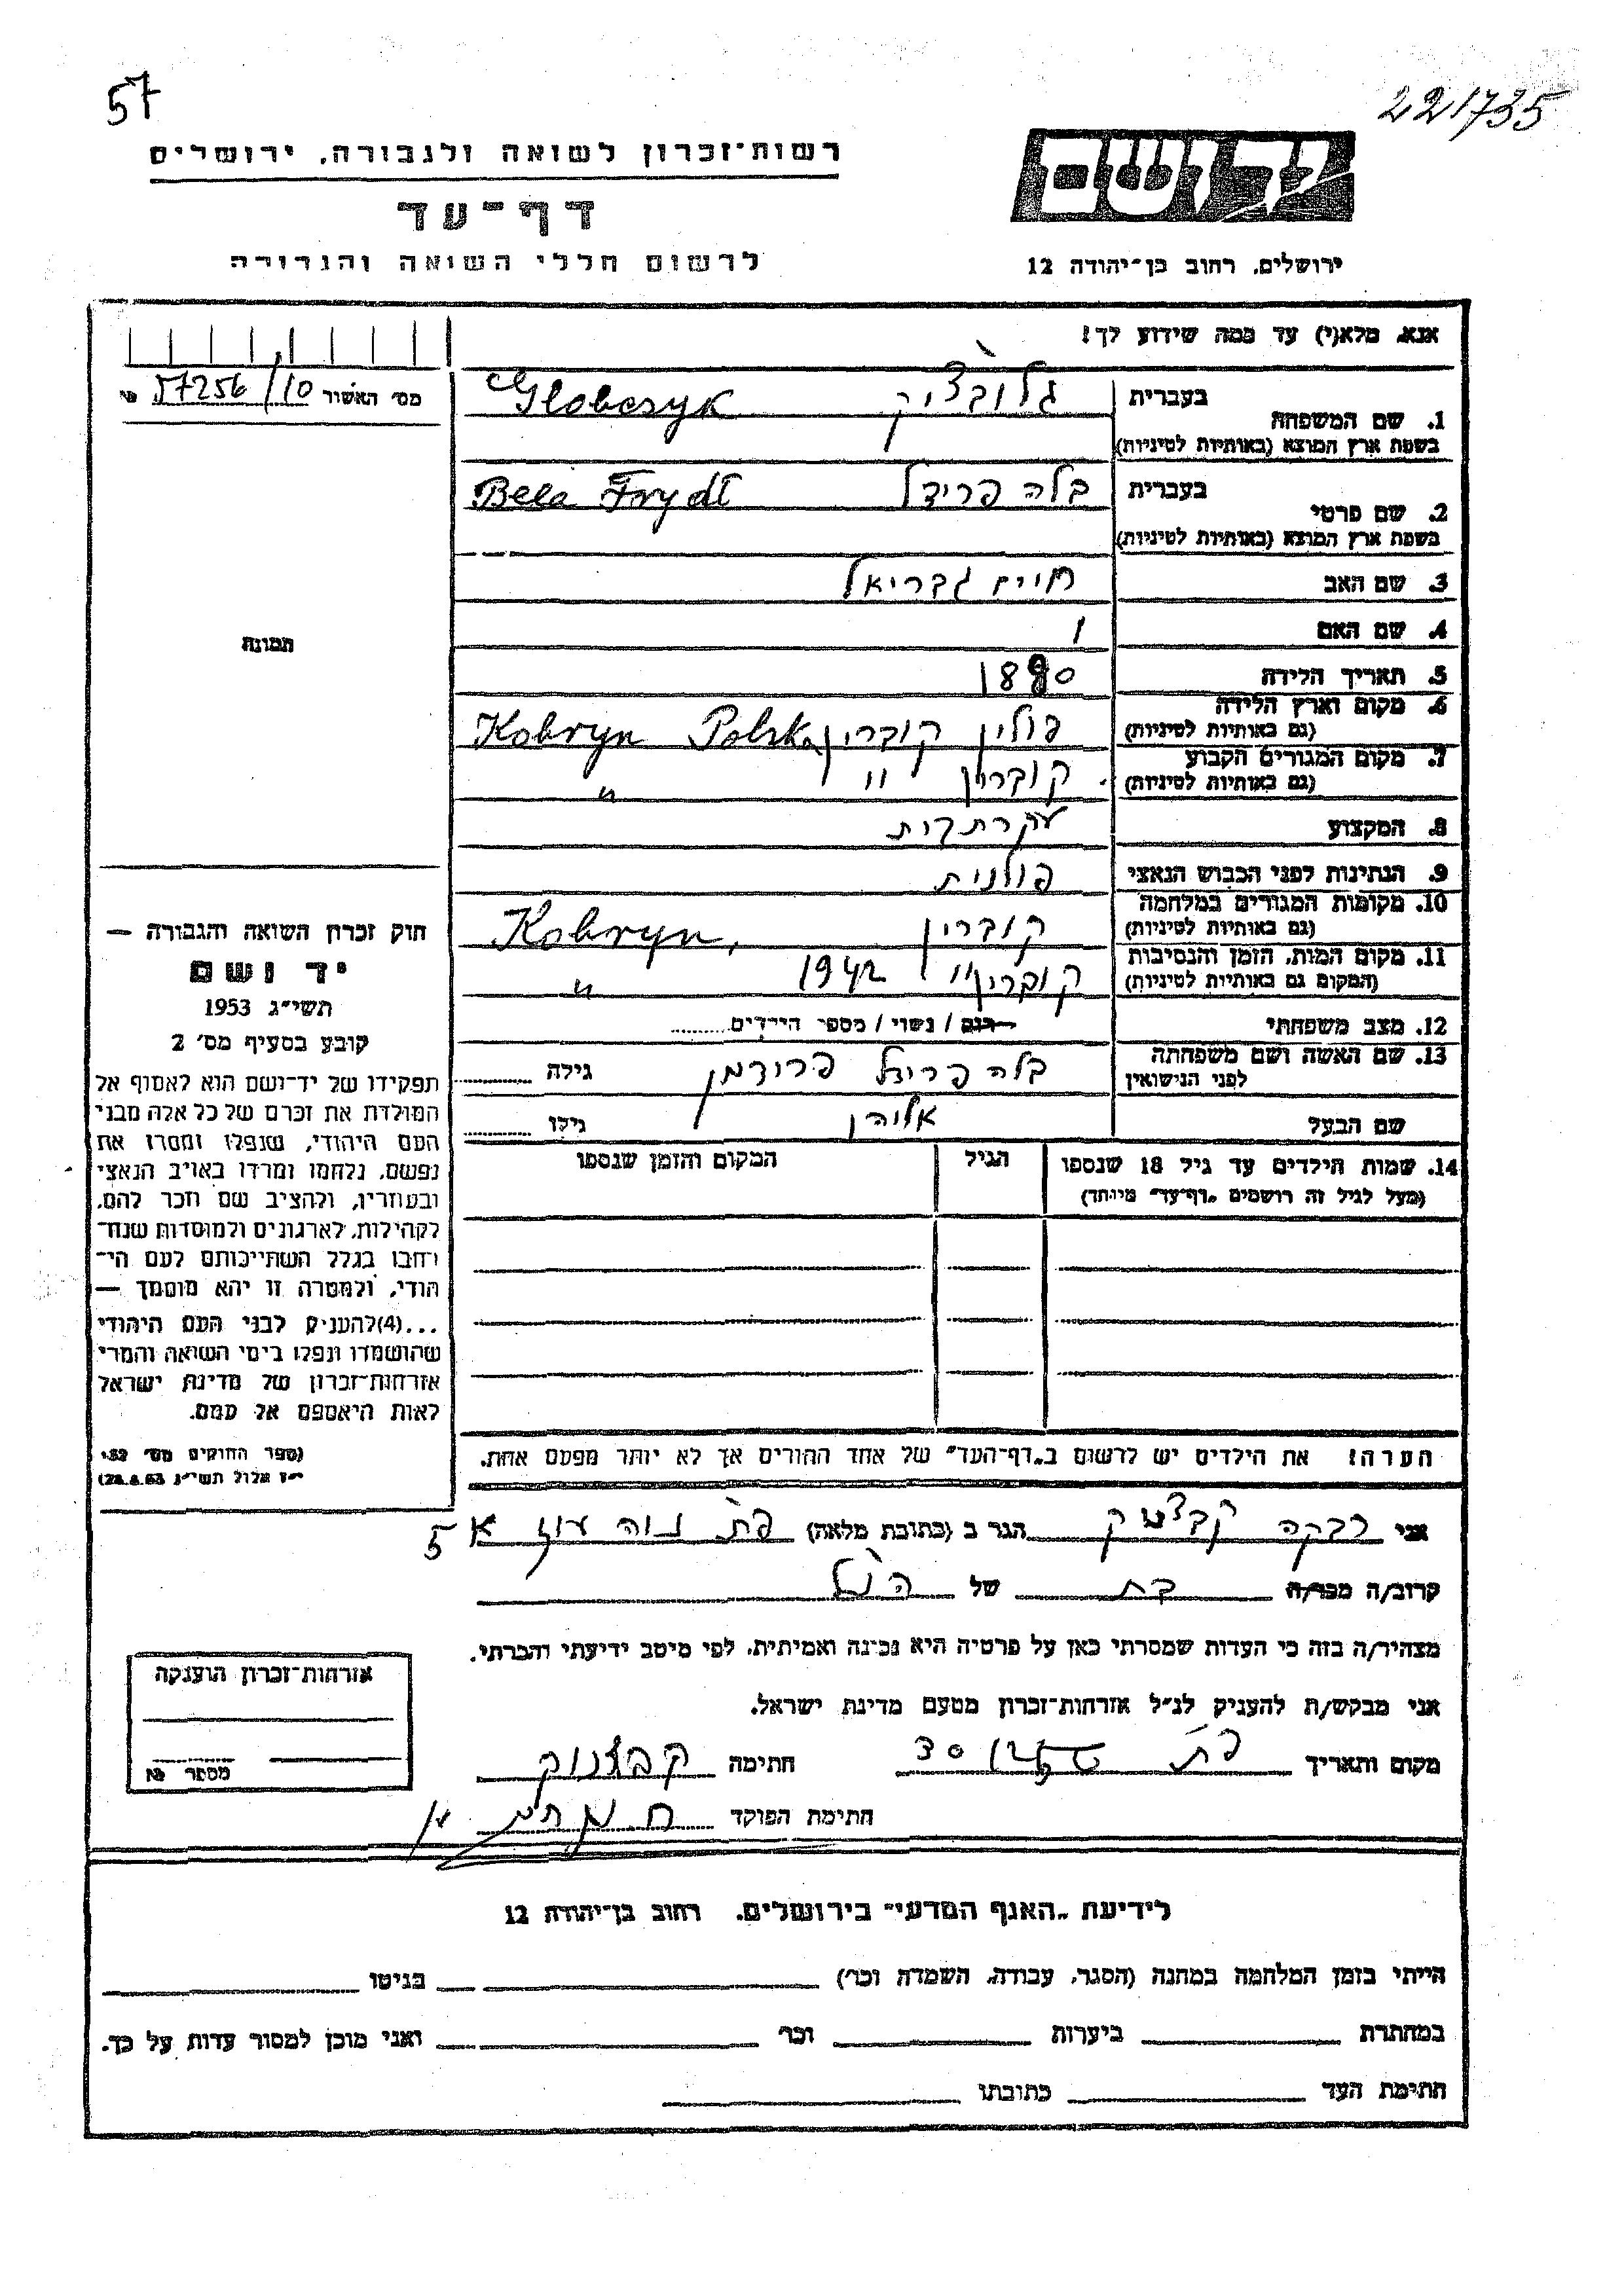 57
221735
רשות־זכרון לשואה ולגבורה, ירושלים
דף־עד
לרשום חללי השואה והגבורה
ירושלים, רחוב בן־יהודה 12
אנא, מלא(י) עד כמה שידוע לך!
מס׳ האשור № 57256/10
בעברית גלובצ׳יק Globczyk
1. שם המשפחה
בשפת ארץ המוצא (באותיות לטיניות)
בעברית בלה פרידל Bela Frydl
2. שם פרטי
בשפת ארץ המוצא (באותיות לטיניות)
3. שם האב חיים גבריאל
4. שם האם
5. תאריך הלידה 1880
6. מקום וארץ הלידה פולין קוברין Kobryn Polska
(גם באותיות לטיניות)
7. מקום המגורים הקבוע קוברין " "
(גם באותיות לטיניות)
8. המקצוע עקרת בית
9. הנתינות לפני הכבוש הנאצי פולנית
10. מקומות המגורים במלחמה קוברין Kobryn,
(גם באותיות לטיניות)
11. מקום המות, הזמן והנסיבות קוברין " 1942 "
(המקום גם באותיות לטיניות)
12. מצב משפחתי רווק / נשוי / מספר הילדים
13. שם האשה ושם משפחתה בלה פרידל פרידמן גילה
לפני הנישואין
שם הבעל אליהו גילו
14. שמות הילדים עד גיל 18 שנספו הגיל המקום והזמן שנספו
(מעל לגיל זה רושמים „דף־עד״ מיוחד)
הערה! את הילדים יש לרשום ב„דף־העד״ של אחד ההורים אך לא יותר מפעם אחת.
תמונה
חוק זכרון השואה והגבורה —
יד ושם
תשי״ג 1953
קובע בסעיף מס׳ 2
תפקידו של יד־ושם הוא לאסוף אל
המולדת את זכרם של כל אלה מבני
העם היהודי, שנפלו ומסרו את
נפשם, נלחמו ומרדו באויב הנאצי
ובעוזריו, ולהציב שם וזכר להם,
לקהילות, לארגונים ולמוסדות שנח־
רבו בגלל השתייכותם לעם הי־
הודי, ולמטרה זו יהא מוסמך —
...(4)להעניק לבני העם היהודי
שהושמדו ונפלו בימי השואה והמרי
אזרחות־זכרון של מדינת ישראל
לאות היאספם אל עמם.
(ספר החוקים מס׳ 132,
י״ז אלול תשי״ג 28.8.53)
אני רבקה הגר ב (כתובת מלאה) פ״ת נוה עוז א 5
קרוב/ה מכר/ה בת של הנ״ל
מצהיר/ה בזה כי העדות שמסרתי כאן על פרטיה היא נכונה ואמיתית, לפי מיטב ידיעתי והכרתי.
אני מבקש/ת להעניק לנ״ל אזרחות־זכרון מטעם מדינת ישראל.
מקום ותאריך פ״ת חתימה
חתימת הפוקד
אזרחות־זכרון הוענקה
מספר №
לידיעת „האגף המדעי״ בירושלים, רחוב בן־יהודה 12
הייתי בזמן המלחמה במחנה (הסגר, עבודה, השמדה וכו׳) בגיטו
במחתרת ביערות וכו׳ ואני מוכן למסור עדות על כך.
חתימת העד כתובתו